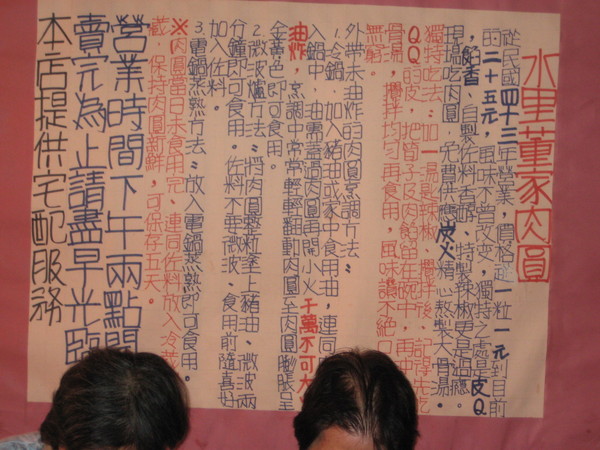 水里董家肉圓
從民國四十三年營業，價格從一粒一元到目前
的二十五元，風味不曾改变，獨特之處是皮Q
，餡香，自製佐料香醇、特製辣椒更是過癮。
現場吃肉圓，免費供應皮火精心熬製大骨湯。
獨特吃法：加一湯匙辣椒、攪拌後、記得先吃
QQ的皮，把筍子及肉餡留在碗中，再
骨湯，攪拌均勻再食用，風味讓不絕口
無窮。
外帶未油炸的肉圓烹調方法：
1.冷鍋，加入豬油或家中食用油，連同
入鍋中，油需蓋過肉圓再開小火 千萬不可大
油炸，烹調中常常輕輕翻動肉圓至肉圓膨脹呈
金黃色即可食用。
2.微波爐方法：將肉圓整粒塗上豬油、微波兩
分鐘即可食用。佐料不要微波、食用前隨喜好
加入佐料。
3.電鍋蒸熟方法：放入電鍋蒸熟即可食用。
※肉圓當日未食用完、連同佐料放入冷
藏、保持肉圓新鮮，可保存五天。
營業時間下午兩點
賣完為止請盡早光臨
本店提供宅配服務